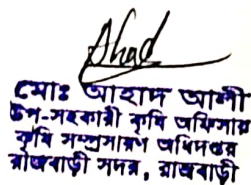 Ahad
মোঃ আহাদ আলী
উপ-সহকারী কৃষি অফিসার
কৃষি সম্প্রসারণ অধিদপ্তর
রাজবাড়ী সদর, রাজবাড়ী